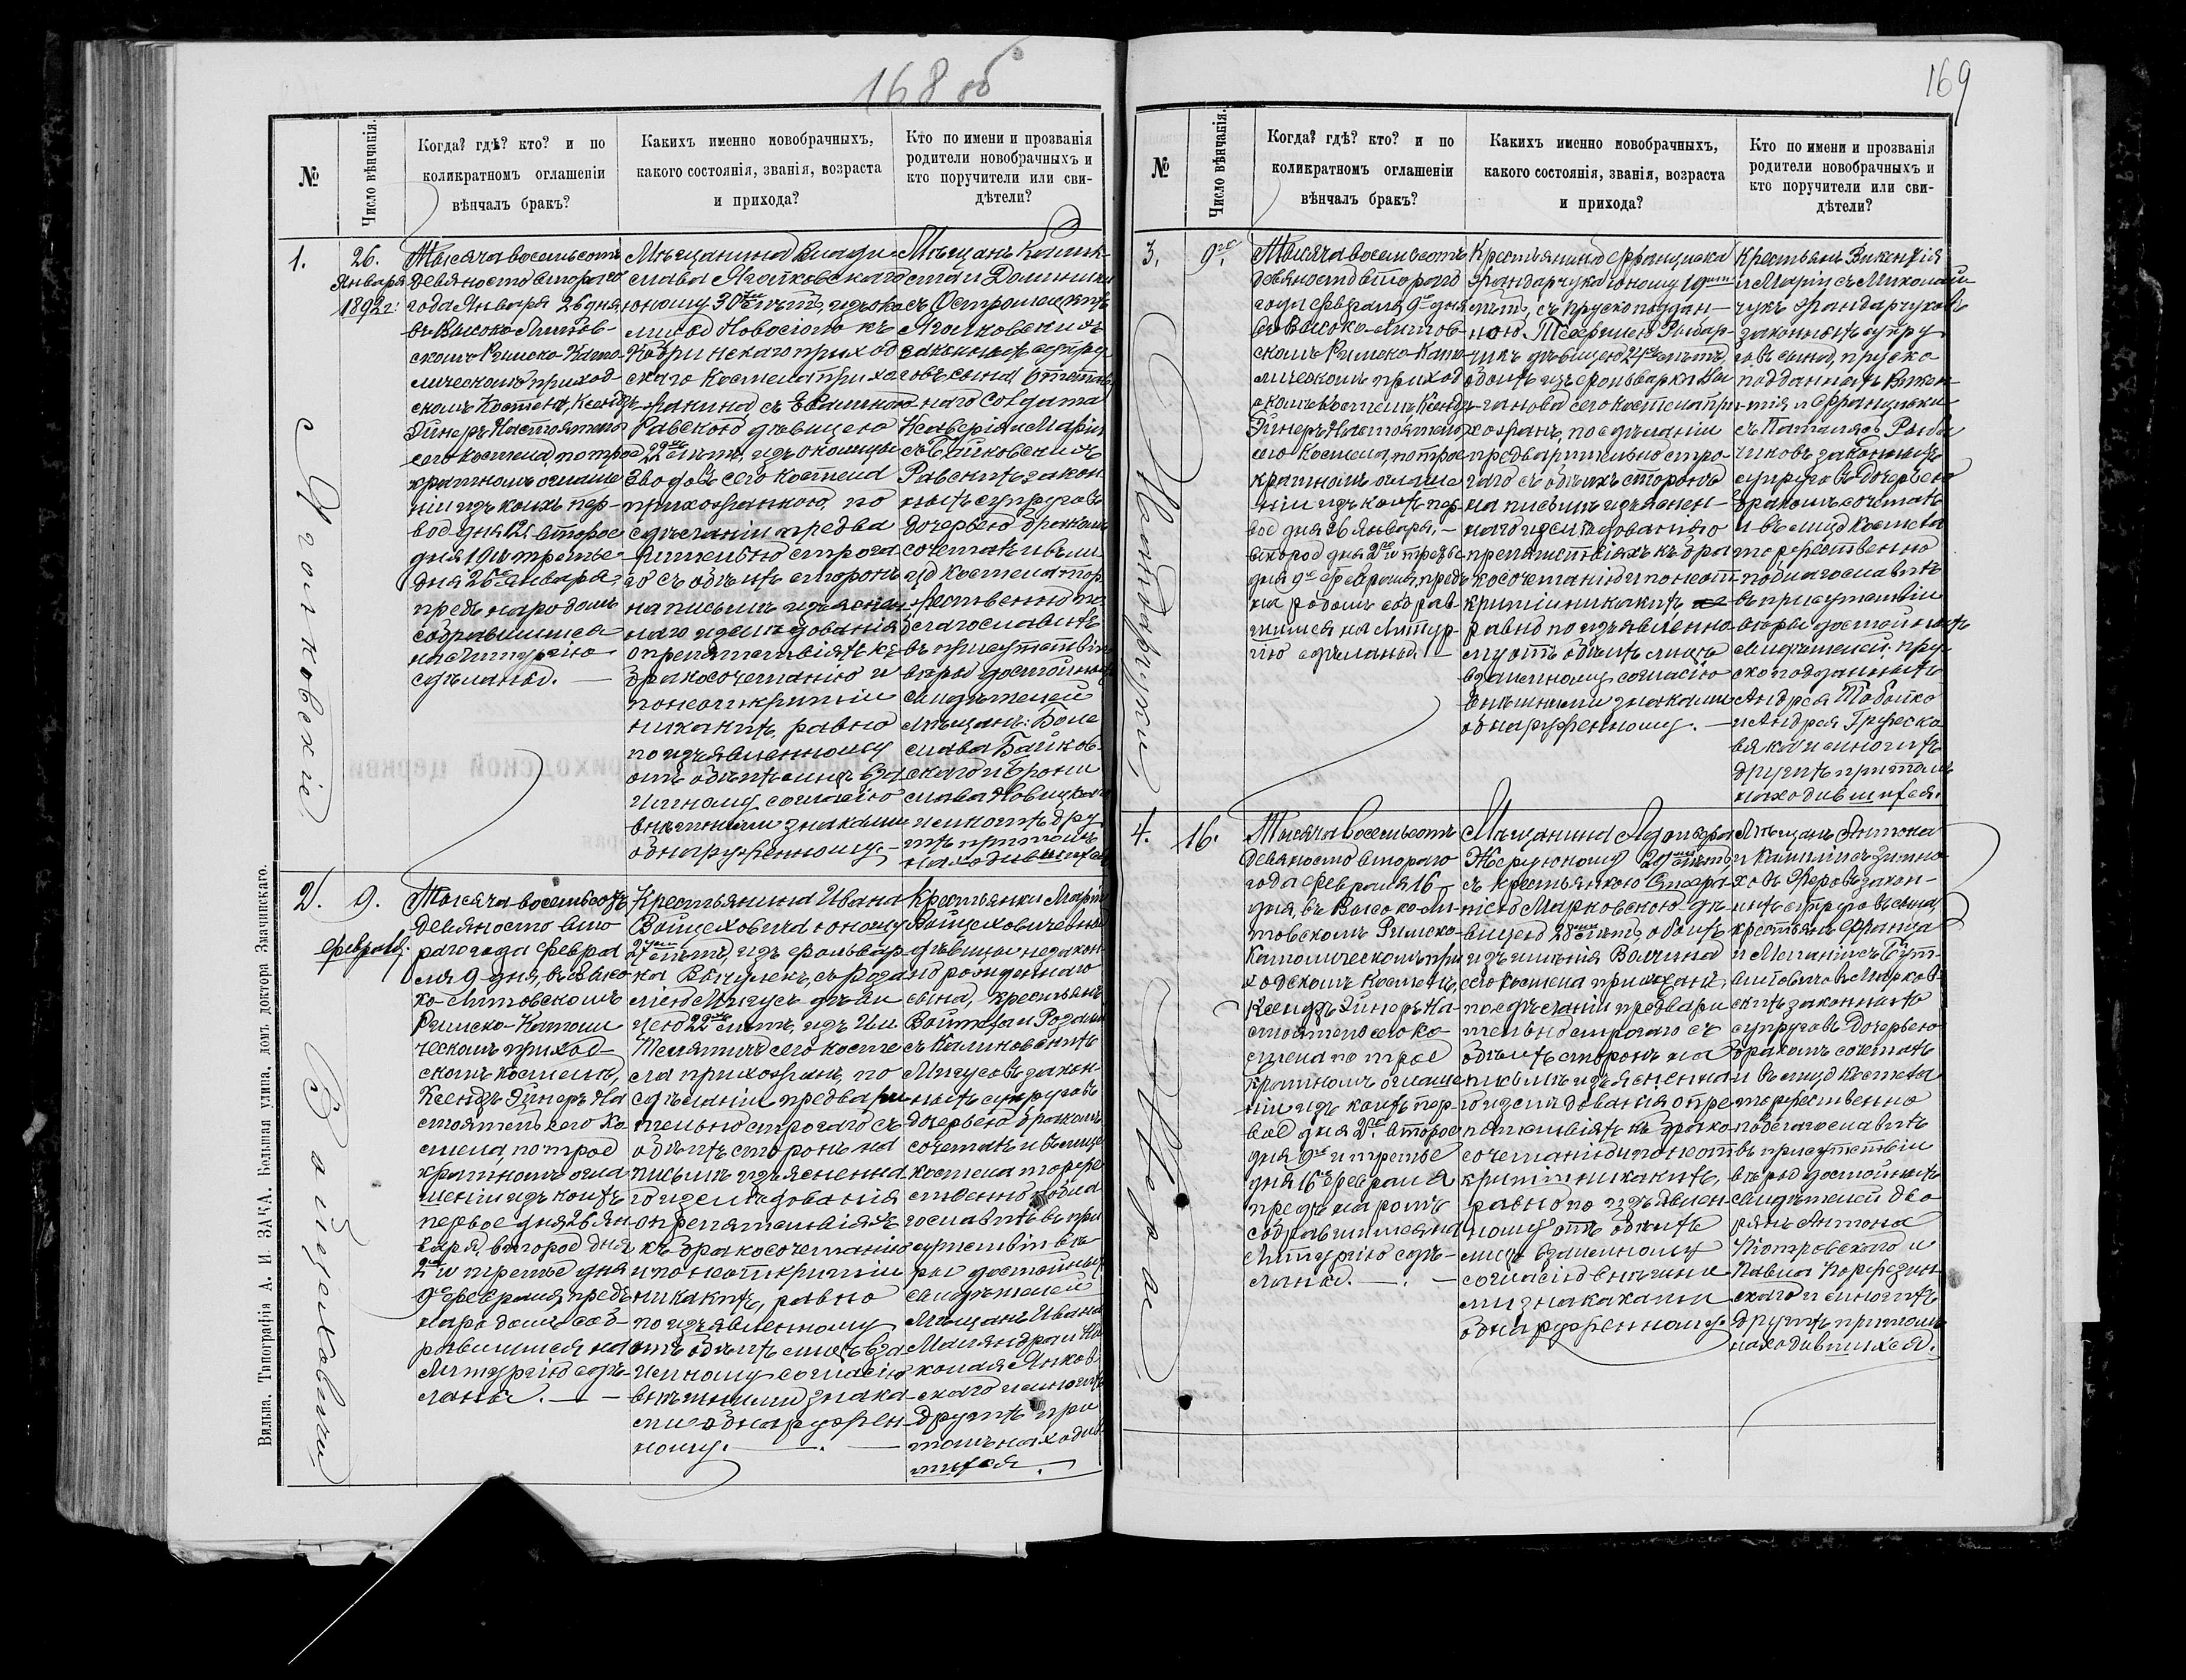 168 об
№
Число вѣнчанія.
Когда? гдѣ? кто? и по
коликратномъ оглашеніи
вѣнчалъ бракъ?
Какихъ именно новобрачныхъ,
какого состоянія, званія, возраста
и прихода?
Кто по имени и прозванія
родители новобрачныхъ и
кто поручители или сви-
дѣтели?
1.
26.
Января
1892 г:
Тысяча восемьсотъ
девяносто втораго
года Января 26 дня,
въ Высоко-Литов-
скомъ Римско-Като-
лическомъ приход-
скомъ Костелѣ, Ксендзъ
Эйнеръ Настоятель
сего костела, по трое
кратномъ оглаше
ніи изъ коихъ пер-
вое дня 12, второе
дня 19 и третье
дня 26 Января,
предъ народомъ
собравшимся
на Литургію
сдѣланы.
Мѣщанина Влади
слава
юношу 30 лѣтъ, изъ око
лицы Новоселю къ
Кобринскаго приход
скаго Костела прихо
жанина съ
Равскою дѣвицею
22 лѣтъ, изъ околицы
сего костела
прихожанкою, по
сдѣланіи предва
рительно строга
го съ обѣихъ сторонъ
на письмѣ изъяснен
наго изслѣдованія
о препятствіяхъ къ
бракосочетанію и
по неоткрытіи
никакихъ, равно
по изъявленному
отъ обѣихъ лицъ вза
имному согласію
внѣшними знаками
обнаруженному.
Мѣщанъ
законныхъ супру
говъ сына, отстав
наго солдата
Ксаверія и Маріи
съ Байковскихъ
Равскихъ закон
ныхъ супруговъ
дочерью бракомъ
сочеталъ и въ ли
цѣ костела тор
жественно по
благословилъ
въ присутствіи
вѣры достойныхъ
свидѣтелей
мѣщанъ: Боле
слава Байков-
скаго и Брони
слава Новицкаго
и многихъ дру
гихъ при томъ
находившихся
2.
9.
Февраля.
Войцеховичи
Тысяча восемьсотъ
девяносто вто
раго года Февра
ля 9 дня, въ Высо
ко-Литовскомъ
Римско-Католи
ческомъ приход-
скомъ костелѣ,
Ксендзъ Эйнеръ На
стоятель сего Ко
стела, по трое
кратномъ огла
шеніи изъ коихъ
первое дня 26 Ян-
варя, второе дня
2го и третье дня
9го Февраля, предъ
народомъ соб-
равшимся на
Литургію сдѣ-
ланы.
Крестьянина Ивана
Войцеховича юношу
27 лѣтъ, изъ фольвар
ка съ Роза
ліею Мигусъ дѣви
цею 22 лѣтъ, изъ
сего косте
ла прихожанъ, по
сдѣланіи предвари
тельно строгаго съ
обѣихъ сторонъ на
письмѣ изъясненна
го изслѣдованія
о препятствіяхъ
къ бракосочетанію
и по неоткрытіи
никакихъ, равно
по изъявленному
отъ обѣихъ лицъ вза
имному согласію
внѣшними знака
ми обнаружен
ному.
Крестьянки Маріи
Войцеховичевны
дѣвицы незакон
но рожденнаго
сына, крестьянъ
и Розаліи
съ Калиновскихъ
Мигусовъ закон-
ныхъ супруговъ
дочерью бракомъ
сочеталъ и въ лицѣ
костела торже
ственно побла
гословилъ въ при
сутствіи вѣ
ры достойныхъ
свидѣтелей
Мѣщанъ Ивана
и Ни
колая Янков
скаго и многихъ
другихъ при
томъ находив
шихся.
Вильна. Типографія А. И. ЗАКА. Большая улица, домъ доктора Змачинскаго.
169
№
Число вѣнчанія.
Когда? гдѣ? кто? и по
коликратномъ оглашеніи
вѣнчалъ бракъ?
Какихъ именно новобрачныхъ,
какого состоянія, званія, возраста
и прихода?
Кто по имени и прозванія
родители новобрачныхъ и
кто поручители или сви-
дѣтели?
3.
9го.
Тысяча восемьсотъ
девяносто втораго
года Февраля 9го дня
въ Высоко-Литов-
скомъ Римско-Като
лическомъ приход
скомъ костелѣ Ксендзъ
Эйнеръ Настоятель
сего Костела, по трое
кратномъ оглаше
ніи изъ коихъ пер-
вое дня 26 Января,
второе дня 2го и третье
дня 9го Февраля, предъ
народомъ собрав-
шимся на Литур-
гію сдѣланы.
Крестьянина Францишка
Жандарчука юношу 19
лѣтъ, съ прускоподдан-
ною Теофилею Рыбар-
чикъ дѣвицею 24 лѣтъ,
обоихъ изъ фольварка
сего костела при
хожанъ, по сдѣланіи
предварительно стро-
гаго съ обѣихъ сторонъ
на письмѣ изъяснен-
наго изслѣдованія о
препятствіяхъ къ бра
косочетанію и по неот
крытіи никакихъ
равно по изъявленно
му отъ обѣихъ лицъ
взаимному согласію
внѣшними знаками
обнаруженному.
Крестьянъ Викентія
и Маріи съ Миколай
чукъ Жандарчуковъ
законныхъ супру
говъ сына, пруско
подданныхъ Викен-
тія и Францишки
съ
законныхъ
супруговъ дочерью
бракомъ сочеталъ
и въ лицѣ костела
торжественно
поблагословилъ
въ присутствіи
вѣры достойныхъ
свидѣтелей: пру
скоподданныхъ
Андрея
и Андрея
и многихъ
другихъ при томъ
находившихся.
4.
16.
Жеро
Тысяча восемьсотъ
девяносто втораго
года Февраля 16
дня, въ Высоко-Ли-
товскомъ Римско-
Католическомъ при
ходскомъ Костелѣ,
Ксендзъ Эйнеръ На-
стоятель сего ко-
стела по трое
кратномъ оглаше
ніи изъ коихъ пер-
вое дня 2го. второе
дня 9го и третье
дня 16го Февраля
предъ народомъ
собравшимся на
Литургію сдѣ-
ланы.
Мѣщанина Адольфа
Жеру юношу лѣтъ
съ крестьянкою
Марковскою дѣ
вицею 28 лѣтъ, обоихъ
изъ имѣнія Волчина
сего костела прихожанъ,
по сдѣланіи предвари
тельно строгаго съ
обѣихъ сторонъ на
письмѣ изъясненна
го изслѣдованія о пре
пятствіяхъ къ брако
сочетанію и по неот
крытіи никакихъ,
равно по изъявлен-
ному отъ обѣихъ
лицъ взаимному
согласію внѣшни
ми знаками
обнаруженному.
Мѣщанъ Антона
и
Жеровъ закон-
ныхъ супруговъ сына,
крестьянъ Франца
и
Марков
скихъ законныхъ
супруговъ дочерью
бракомъ сочеталъ
и въ лицѣ костела
торжественно
поблагословилъ
въ присутствіи
вѣры достойныхъ
свидѣтелей дво
рянъ Антона
Піотровскаго и
Павла
и многихъ
другихъ при томъ
находившихся.